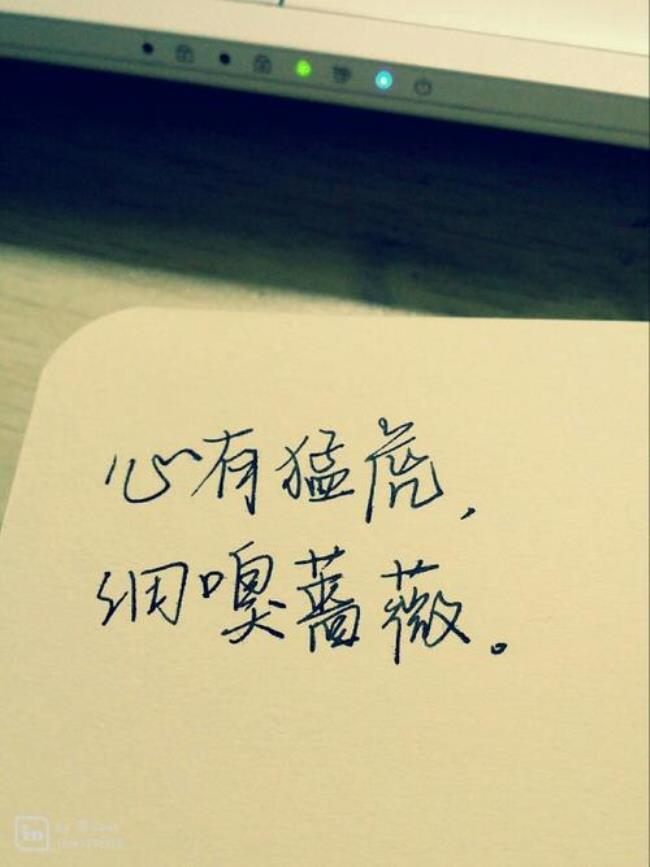 心有猛虎，
细嗅蔷薇。
in